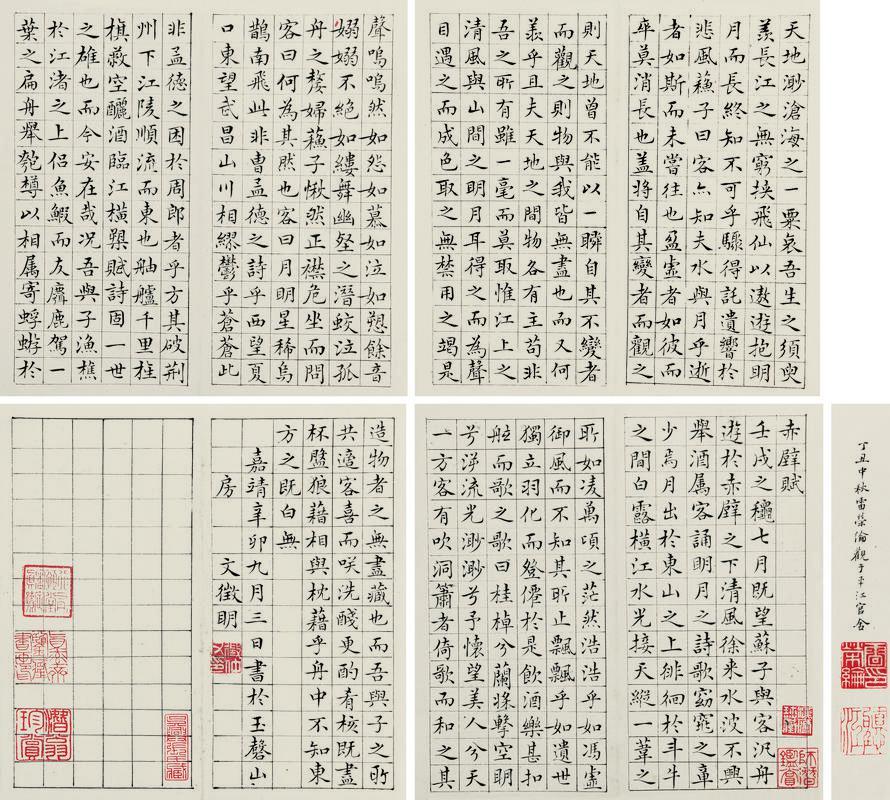 赤壁賦
壬戌之穐七月既望蘇子與客汎舟
遊於赤壁之下清風徐来水波不興
舉酒属客誦明月之詩歌窈窕之章
少焉月出於東山之上徘徊於斗牛
之間白露橫江水光接天縱一葦之
所如凌萬頃之茫然浩浩乎如馮虛
御風而不知其所止飄飄乎如遺世
獨立羽化而登僊於是飲酒樂甚扣
舷而歌之歌曰桂棹兮蘭槳擊空明
兮泝流光渺渺兮予懷望美人兮天
一方客有吹洞簫者倚歌而和之其
聲嗚嗚然如怨如慕如泣如愬餘音
嫋嫋不絕如縷舞幽壑之潛蛟泣孤
舟之嫠婦蘇子愀然正襟危坐而問
客曰何為其然也客曰月明星稀烏
鵲南飛此非曹孟德之詩乎西望夏
口東望武昌山川相繆鬱乎蒼蒼此
非孟德之困於周郎者乎方其破荊
州下江陵順流而東也舳艫千里旌
旗蔽空釃酒臨江橫槊賦詩固一世
之雄也而今安在哉况吾與子漁樵
於江渚之上侶魚鰕而友麋鹿駕一
葉之扁舟舉匏樽以相属寄蜉蝣於
天地渺滄海之一粟哀吾生之須臾
羨長江之無窮挾飛仙以遨遊抱明
月而長終知不可乎驟得託遺響於
悲風蘇子曰客亦知夫水與月乎逝
者如斯而未嘗往也盈虛者如彼而
卒莫消長也盖將自其變者而觀之
則天地曾不能以一瞬自其不變者
而觀之則物與我皆無盡也而又何
羨乎且夫天地之間物各有主苟非
吾之所有雖一毫而莫取惟江上之
清風與山間之明月耳得之而為聲
目遇之而成色取之無禁用之竭是
造物者之無盡藏也而吾與子之所
共適客喜而咲洗盞更酌肴核既盡
杯盤狼藉相與枕藉乎舟中不知東
方之既白無
嘉靖辛卯九月三日書於玉磬山
房 文徵明
丁丑中秋雷榮瀹觀于平江官舍